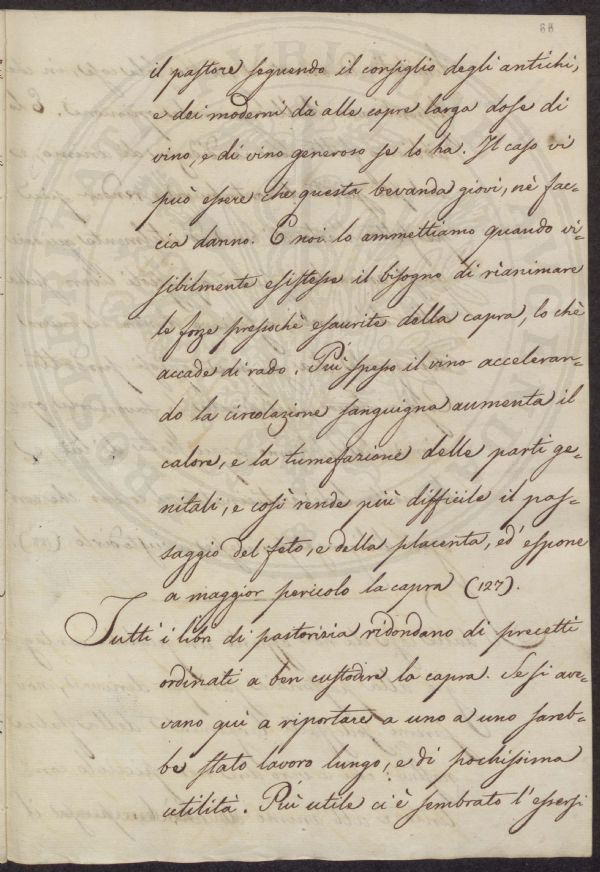 68
il pastore seguendo il consiglio degli antichi,
e dei moderni dà alle capre larga dose di
vino, e di vino generoso se lo ha. Il caso vi
può essere che questa bevanda giovi, nè fac=
cia danno. E noi lo ammettiamo quando vi=
sibilmente esistesse il bisogno di rianimare
le forze pressochè esaurite della capra, lo chè
accade di rado. Più spesso il vino acceleran=
do la circolazione sanguigna aumenta il
calore, e la tumefazione delle parti ge=
nitali, e così rende più difficile il pas=
saggio del feto, e della placenta, ed' espone
a maggior pericolo la capra (127).
Tutti i libri di pastorizia ridondano di precetti
ordinati a ben custodire la capra. Se si ave=
vano quì a riportare a uno a uno sareb=
be stato lavoro lungo, e di pochissima
utilità. Più utile ci è sembrato l'essersi